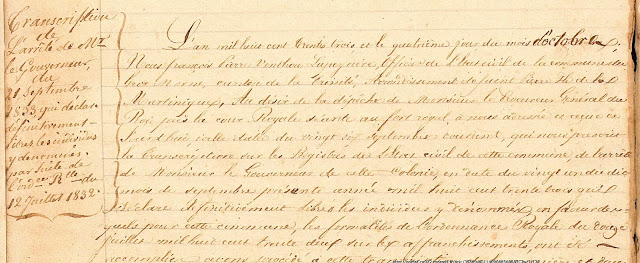 Transcription
de
L'arrêté de Mr.
le Gouverneur,
du
21 Septembre
1833, qui declare
définitivement
libres les individus
y denommés,
par suite de
l'ordce Rle du
12 Juillet 1832.
L'an mil huit cent trente trois, et le quatrième jour du mois d'octobre
Nous françois Pierre officier de l'Etat civil de la commune du
Gros Morne, canton de la Trinité, Arrondissement de Saint Pierre Ile de la
Martinique, Au désir de la dépêche de Monsieur le Procureur Général du
Roi près la cour Royale séante au fort royal, à nous adressée et reçue ce
Jourd'hui, icelle datée du vingt six septembre courant, qui nous prescrit
la transcription sur les Registres de l'état civil de cette commune, de l'arrêté
de Monsieur le Gouverneur de cette Colonie, en date du vingt un du dit
mois de septembre présente année mil huit cent trente trois qui
déclare définitivement libres les individus y dénommés, en faveur des
quels pour cette commune, les formalités de l'ordonnance Royale du douze
juillet mil huit cent trente deux sur les affranchissements, ont été
accomplies, avons procédé à cette